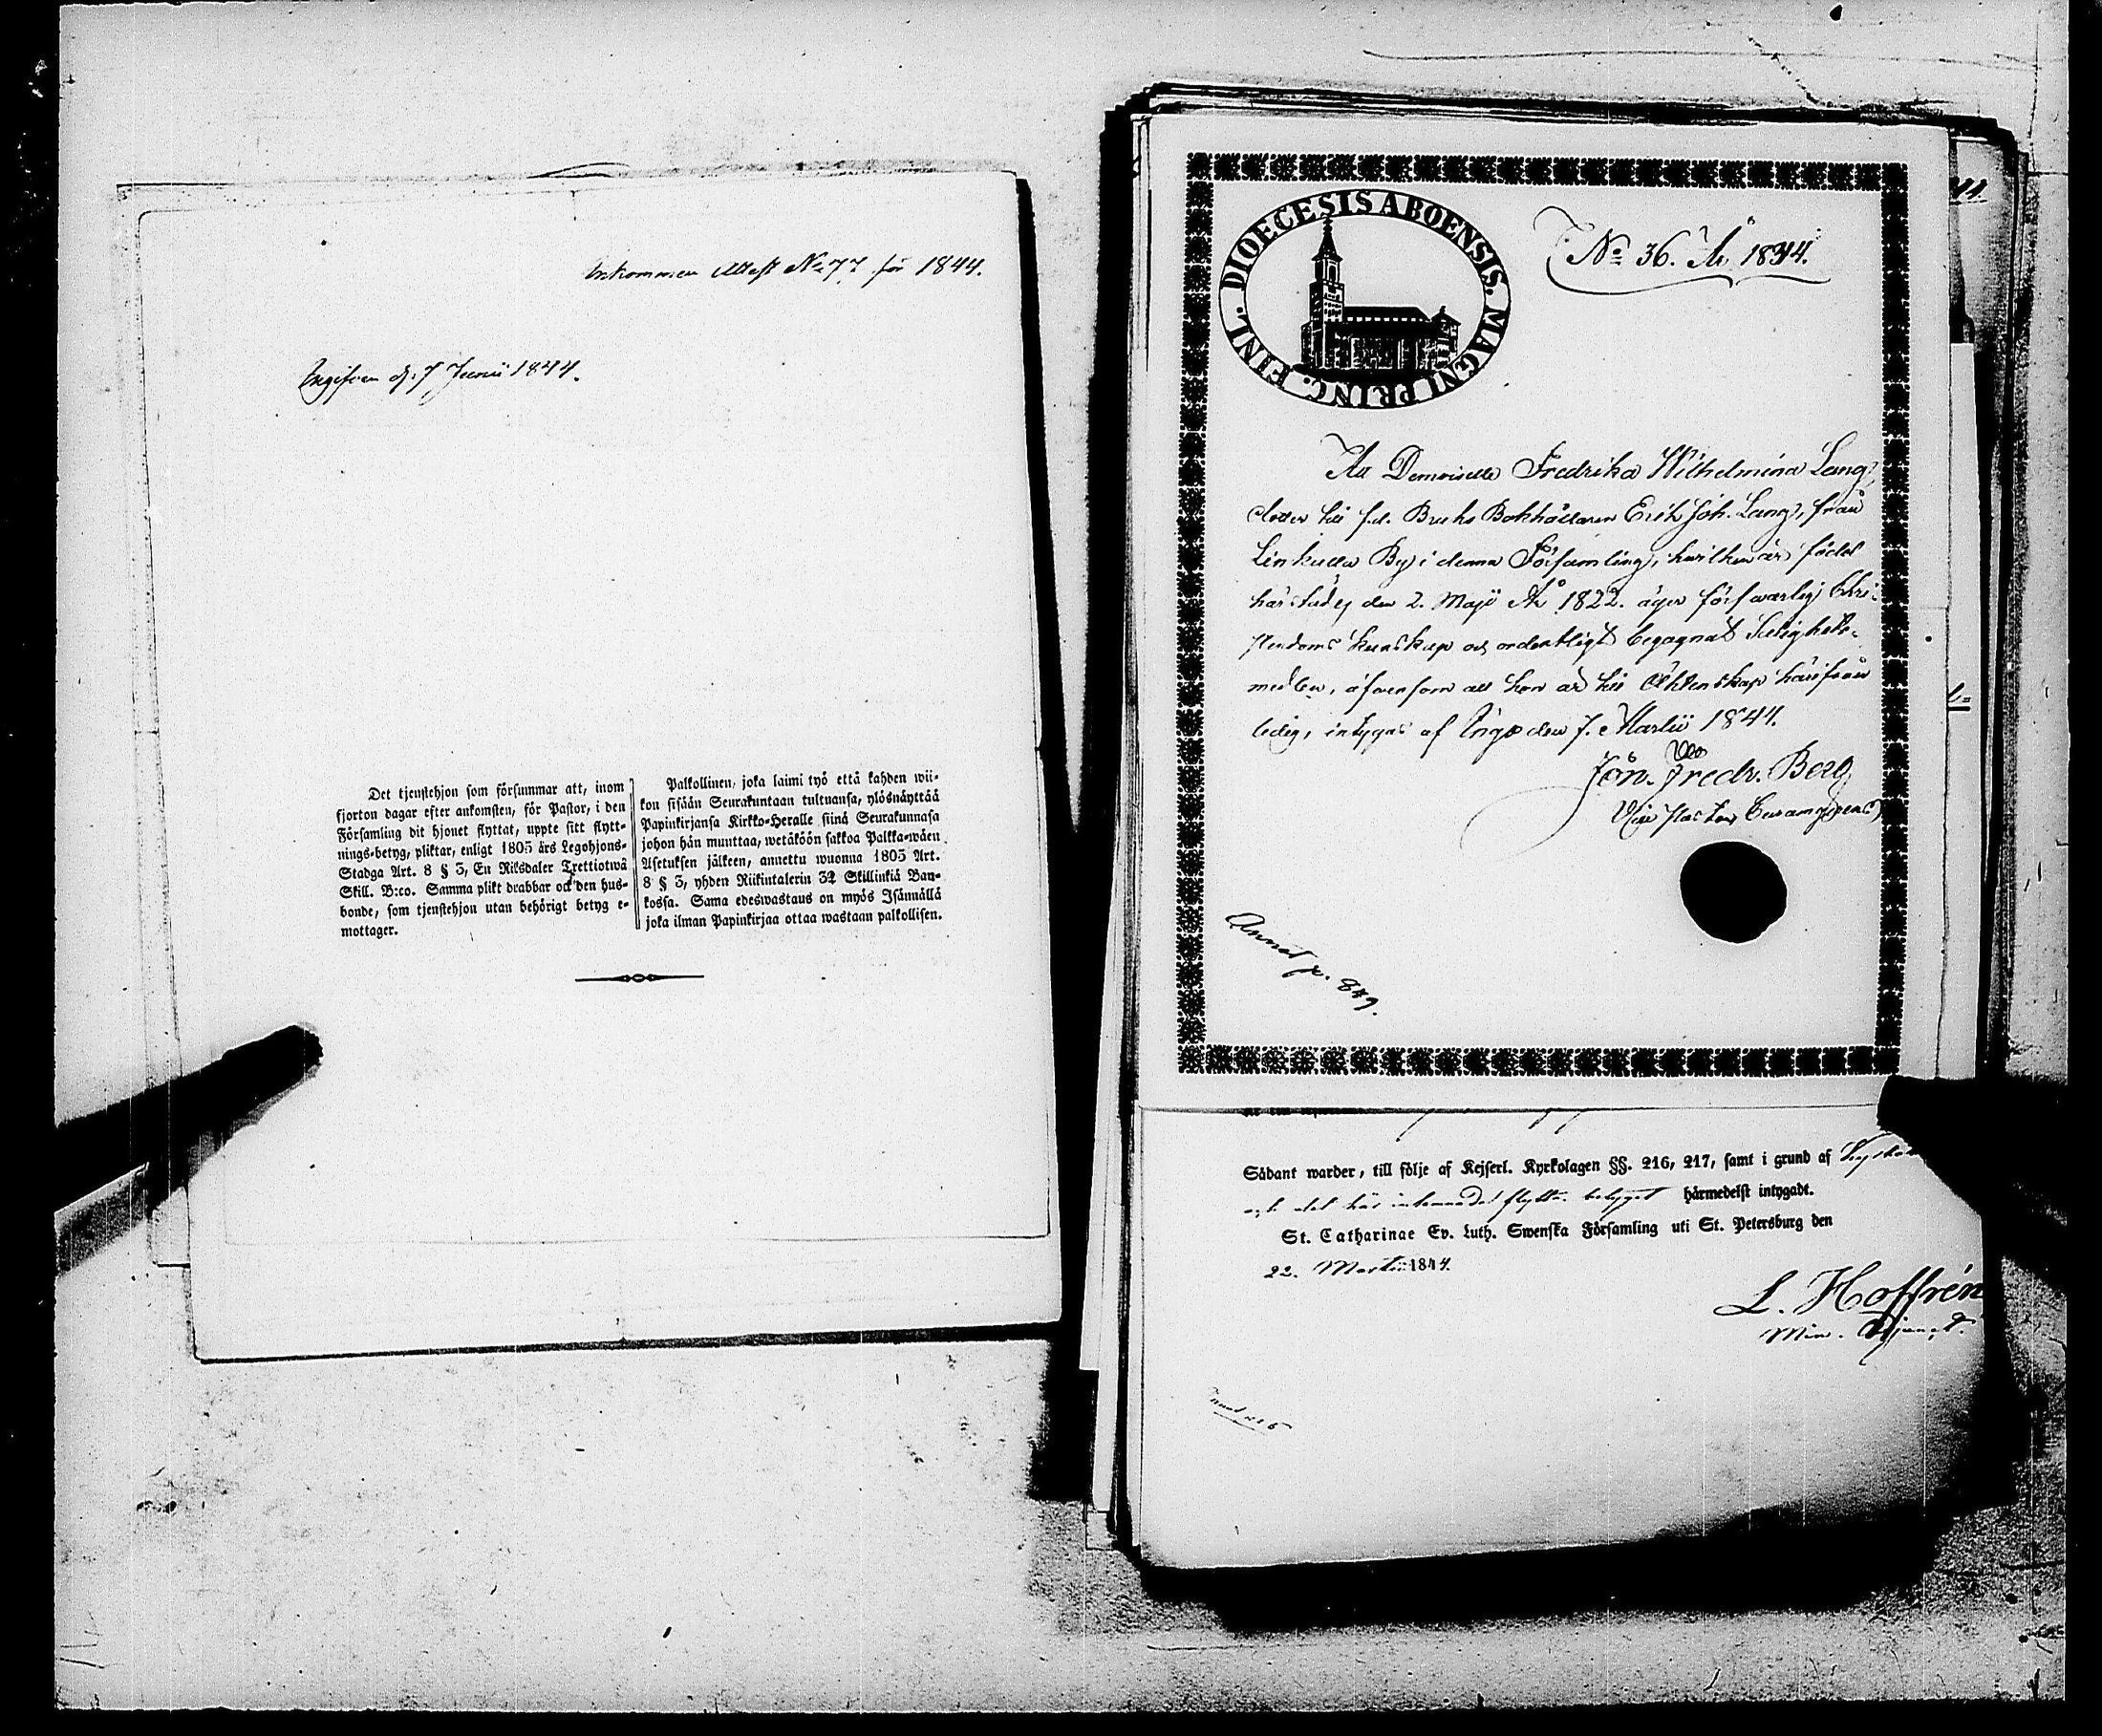 Inkommen Attest No 77 för 1844.
Ingifven d. 7 Junii 1844.
Det tjenstehjon som försummar att, inom
fjorton dagar efter ankomsten, för Pastor, i den
Församling dit hjonet flyttat, uppte sitt flytt-
nings-betyg, pliktar, enligt 1805 års Legohjons-
Stadga Art. 8 § 3, En Riksdaler Trettiotwå
Skill. B:co. Samma plikt drabbar ock den hus-
bonde, som tjenstehjon utan behörigt betyg e-
mottager.
Palkollinen, joka laimi työ että kahden wii-
kon sisään Seurakuntaan tultuansa, ylösnäyttää
Papinkirjansa Kirkko-Heralle siinä Seurakunnasa
johon hän munttaa, wetäköön sakkoa Palkka-wäen
Asetuksen jälkeen, annettu wuonna 1805 Art.
8 § 3, yhden Riikintalerin 32 Skillinkiä Ban-
kossa. Sama edeswastaus on myös Isännällä
joka ilman Papinkirjaa ottaa wastaan palkollisen.
DIOECESIS ABOENSIS. MAGNI PRINC. FINL.
No 36. År 1844.
Att Demoiselle Fredrika Wilhelmina Lang,
dotter till f.d. Bruks Bokhållaren Erik Joh. Lang, från
Linkulla By i denna Församling, hwilken är född
härstädes den 2. Maji År 1822. äger förswarlig Chri-
stendoms kunskap och ordentligt begagnat Salighets-
medlen, äfvensom att hon är till Äktenskap härifrån
ledig, intygas af Ingo den 7. Martii 1844.
Jon. Fredr. Berg
Vice Pastor
Annot. p. 849.
Sådant warder, till följe af Kejserl. Kyrkolagen §§. 216, 217, samt i grund af
det här inlemnade flytt-betyget härmedelst intygadt.
St. Catharinae Ev. Luth. Swenska Församling uti St. Petersburg den
22. Martii 1844.
L. Hoffrén
Min. Adjunct.